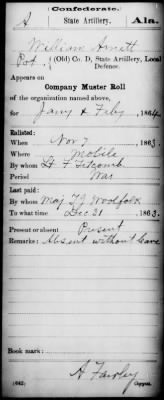 Confederate.
A State Artillery, Ala.
William Arnett
Pvt. (Old) Co. D, State Artillery, Local
Defence.
Appears on
Company Muster Roll
of the organization named above,
for Jany & Feby, 1864.
Enlisted:
When Nov 7, 1863.
Where Mobile
By whom Lt. F Titcomb
Period War
Last paid:
By whom Maj T J Woodfolk
To what time Dec 31, 1863.
Present or absent Present
Remarks: Absent without leave
Book mark:
A Fawley
(642) Copyist.